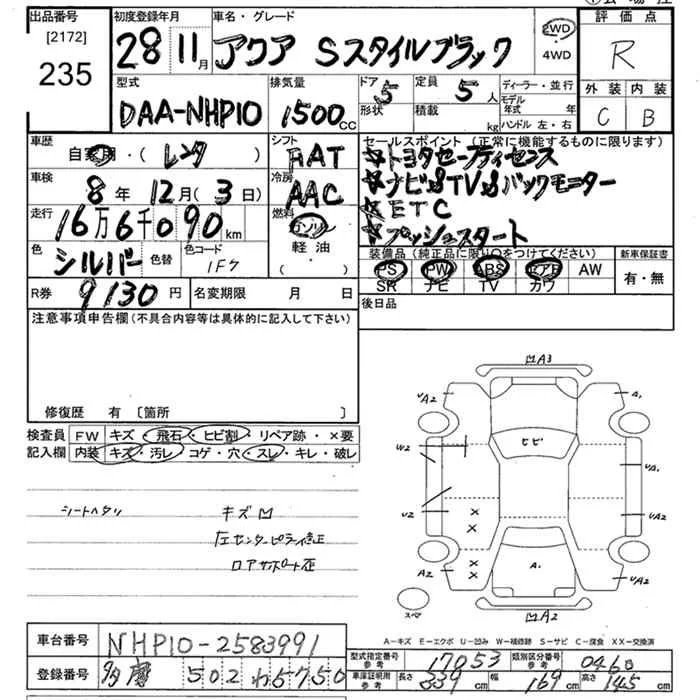 出品番号 初度登録年月 車名・グレード 評価点
[2172]
235 28 11月 アクア Sスタイルブラック 2WD R
4WD
型式 排気量 ドア 5 定員 5人 ディーラー・並行 外装 内装
DAA-NHP10 1500cc 形状 積載 kg モデル年式 年 C B
ハンドル 左・右
車歴 自家用・(レンタ) シフト FAT セールスポイント (正常に機能するものに限ります)
☆トヨタセーフティセンス
車検 8年12月(3日) 冷房 AAC ☆ナビ&TV&バックモニター
☆ETC
走行 16万6千090km 燃料 ガソリン ☆プッシュスタート
軽油
( )
色 シルバー 色替 色コード 1F7 装備品 (純正品に限り○をつけてください) 新車保証書
PS PW ABS エアB AW 有・無
SR ナビ TV カワ
R券 9130円 名変期限 月 日 後日品
注意事項申告欄(不具合内容等は具体的に記入して下さい)
修復歴 有 〔箇所 〕
検査員 FW キズ・飛石・ヒビ割・リペア跡・×要
記入欄 内装 キズ・汚レ・コゲ・穴・スレ・キレ・破レ
シートヘタリ キズ凹
左センターピラー修正
ロアサポート歪
凹A3
UA2 A1
W2 ヒビ UA1
U2 × UA2
×
A2 × A1 UA2
×
スペア 凹A2
A−キズ E−エクボ U−凹み W−補修跡 S−サビ C−腐食 XX−交換済
車台番号 NHP10-2583991
型式指定番号 参考 17053 類別区分番号 参考 0460
登録番号 多摩 502 わ5750
車庫証明用 参考 長さ 399cm 幅 169cm 高さ 145cm